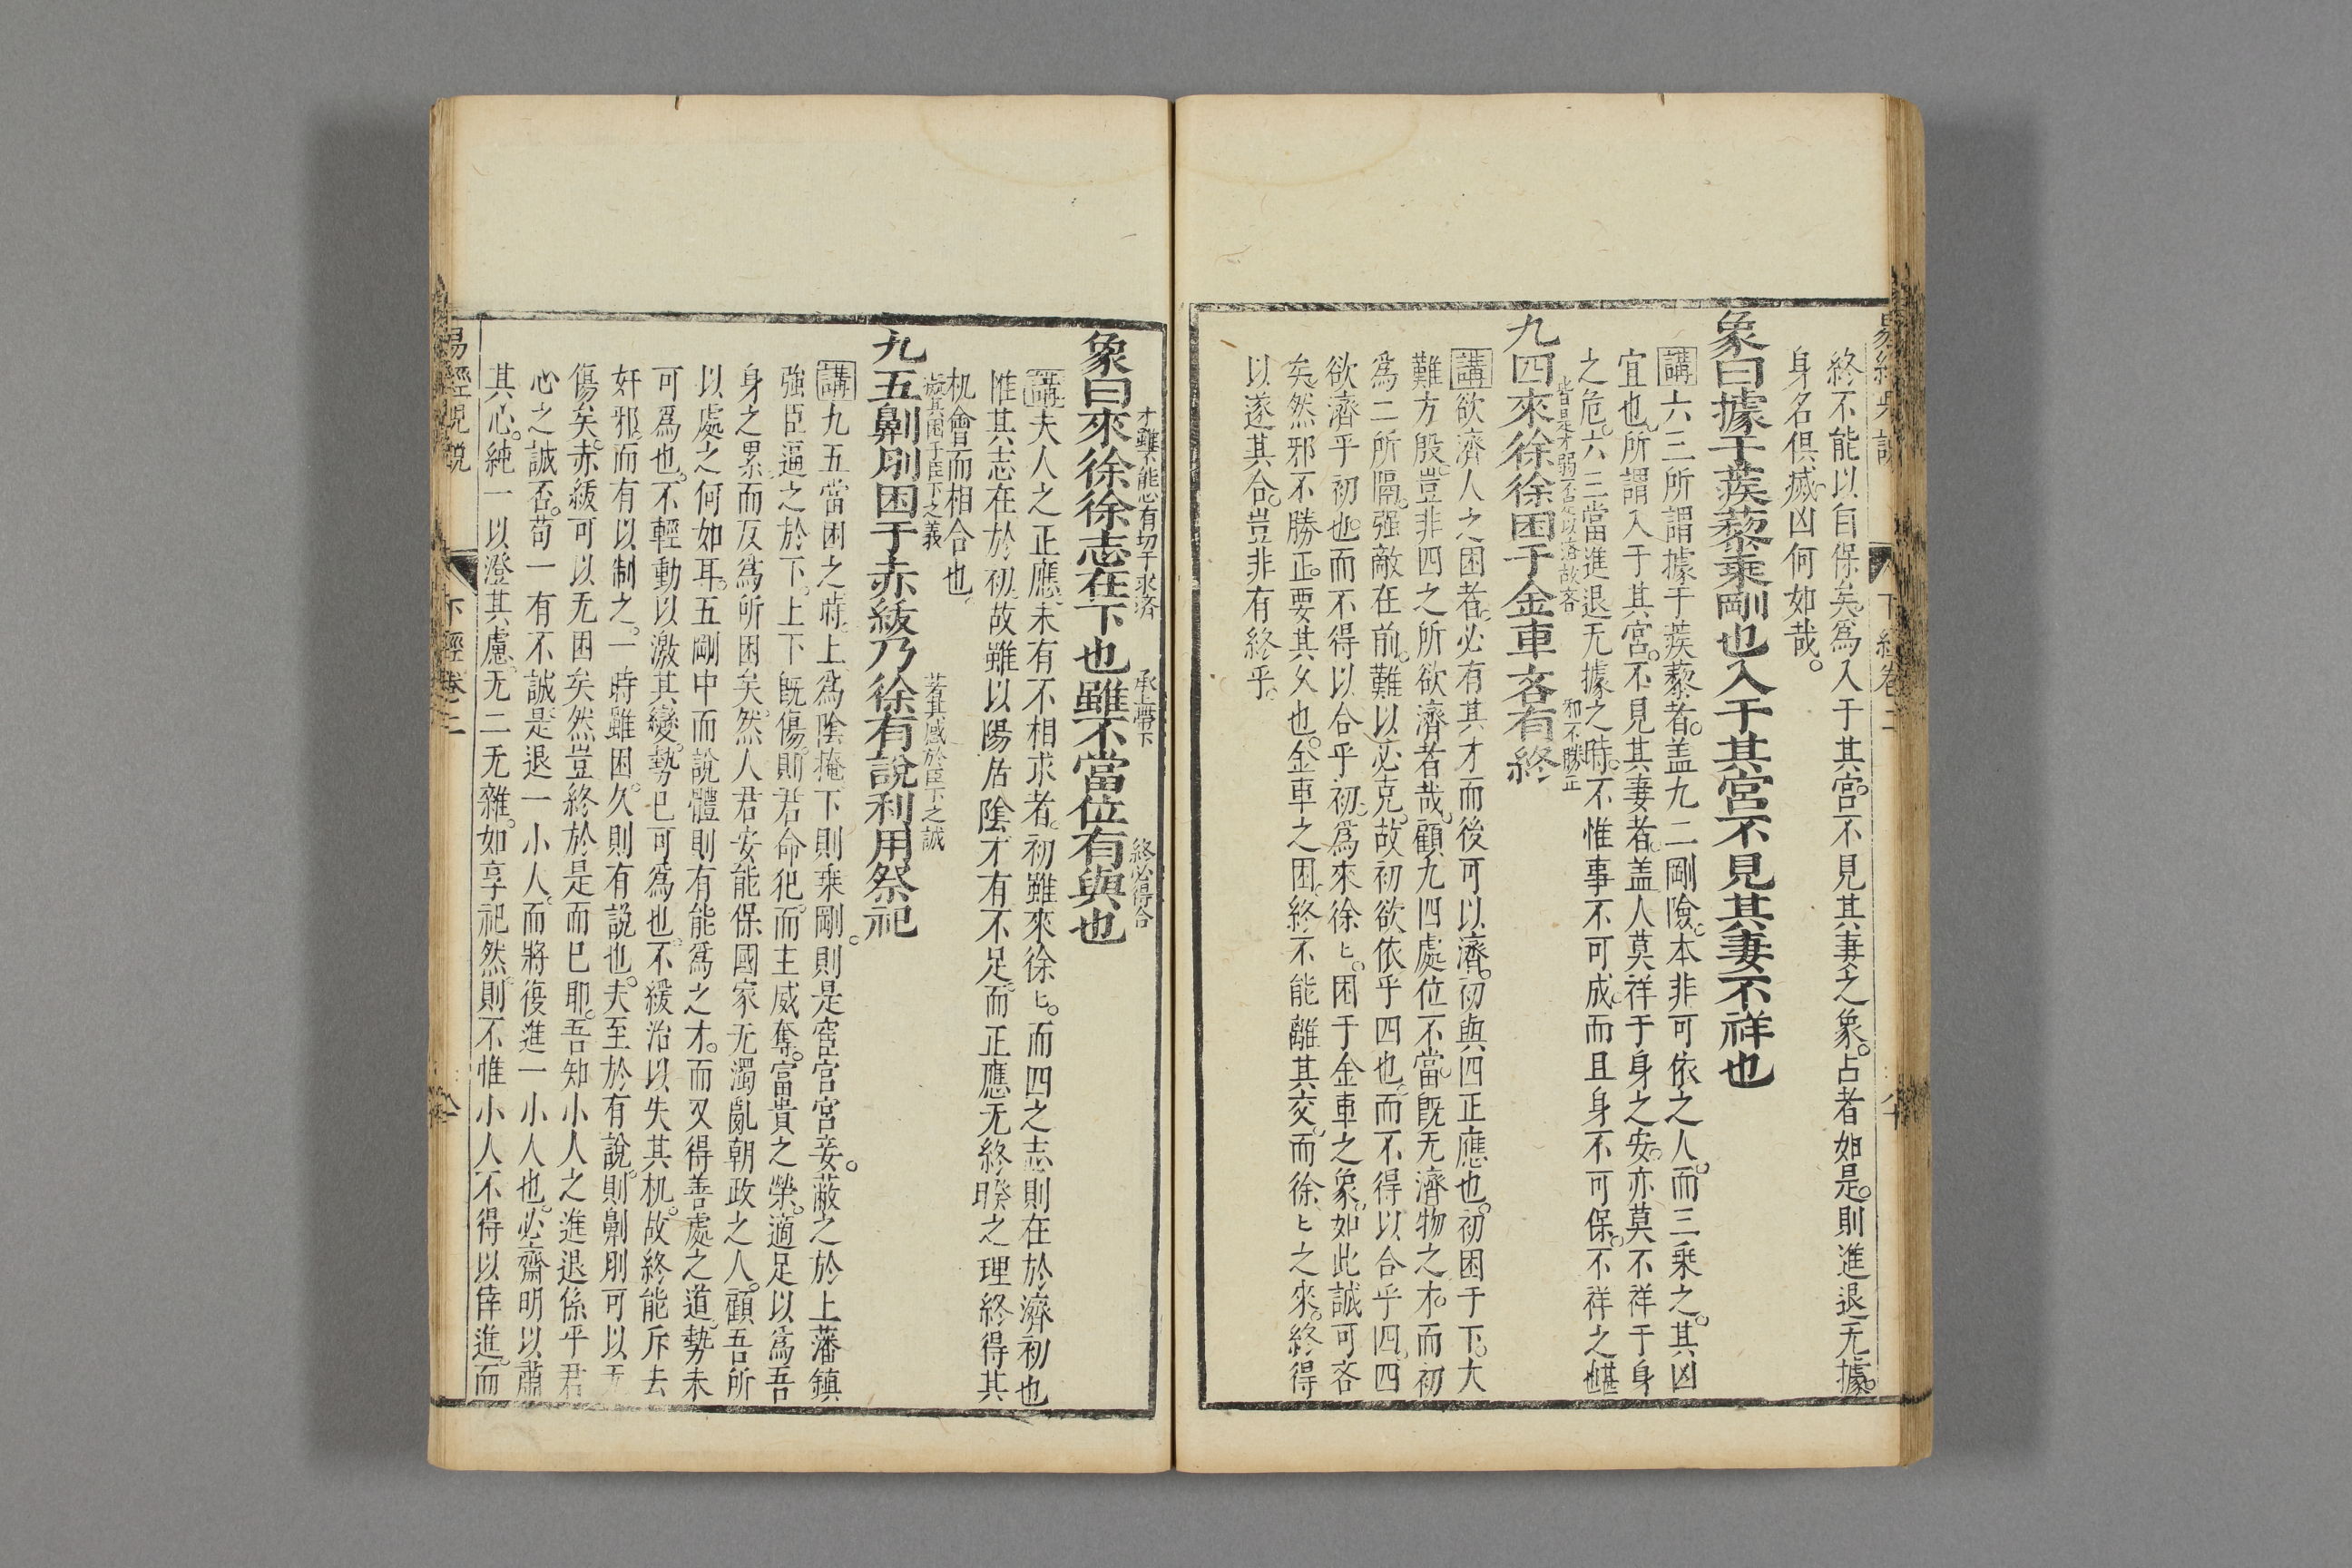 下經卷二
終不能以自保矣。爲入于其宮。不見其妻之象。占者如是。則進退无據。
身名俱滅。凶何如哉。
象曰據于蒺藜乘剛也入于其宮不見其妻不祥也
講六三所謂據于蒺藜者。盖九二剛險。本非可依之人。而三乘之。其凶
宜也。所謂入于其宮。不見其妻者。盖人莫祥于身之安。亦莫不祥于身
之危。六三當進退无據之時。不惟事不可成。而且身不可保。不祥之甚也
皆是才弱不足以濟故吝 和不勝正
九四來徐徐困于金車吝有終
講欲濟人之困者。必有其才而後可以濟。初與四正應也。初困于下。大
難方殷。豈非四之所欲濟者哉。顧九四處位不當。既无濟物之才。而初
爲二所隔。强敵在前。難以必克。故初欲依乎四也。而不得以合乎四。四
欲濟乎初也。而不得以合乎初。爲來徐〻。困于金車之象。如此誠可吝
矣。然邪不勝正。要其久也。金車之困。終不能離其交。而徐〻之來。終得
以遂其合。豈非有終乎。
才雖不能 有切于求濟 承上帶下 終必得合
象曰來徐徐志在下也雖不當位有與也
講夫人之正應。未有不相求者。初雖來徐〻。而四之志則在於濟初也
惟其志在於初。故雖以陽居陰。才有不足。而正應无終暌之理。終得其
机會而相合也。
施其困于臣下之義 若其感於臣下之誠
九五劓刖困于赤紱乃徐有說利用祭祀
講九五當困之時。上爲陰掩。下則乘剛。則是宦官宮妾。蔽之於上。藩鎮
強臣。逼之於下。上下既傷。則君命犯。而主威奪。富貴之榮。適足以爲吾
身之累。而反爲所困矣。然人君安能保國家无濁亂朝政之人。顧吾所
以處之何如耳。五剛中而說體。則有能爲之才。而又得善處之道。勢未
可爲也。不輕動以激其變。勢已可爲也。不緩治以失其机。故終能斥去
奸邪。而有以制之。一時雖困。久則有說也。夫至於有說。則劓刖可以无
傷矣。赤紱可以无困矣。然豈終於是而已耶。吾知小人之進退。係乎君
心之誠否。苟一有不誠。是退一小人。而將復進一小人也。必齋明以肅
其心。純一以澄其慮。无二无雜。如享祀然。則不惟小人不得以倖進。而
易經說 下經卷二